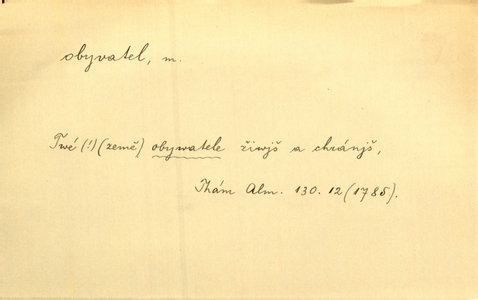 obyvatel, m.
Twé (!) (země) obywatele žiwjš a chránjš,
Thám Alm. 130. 12 (1785).